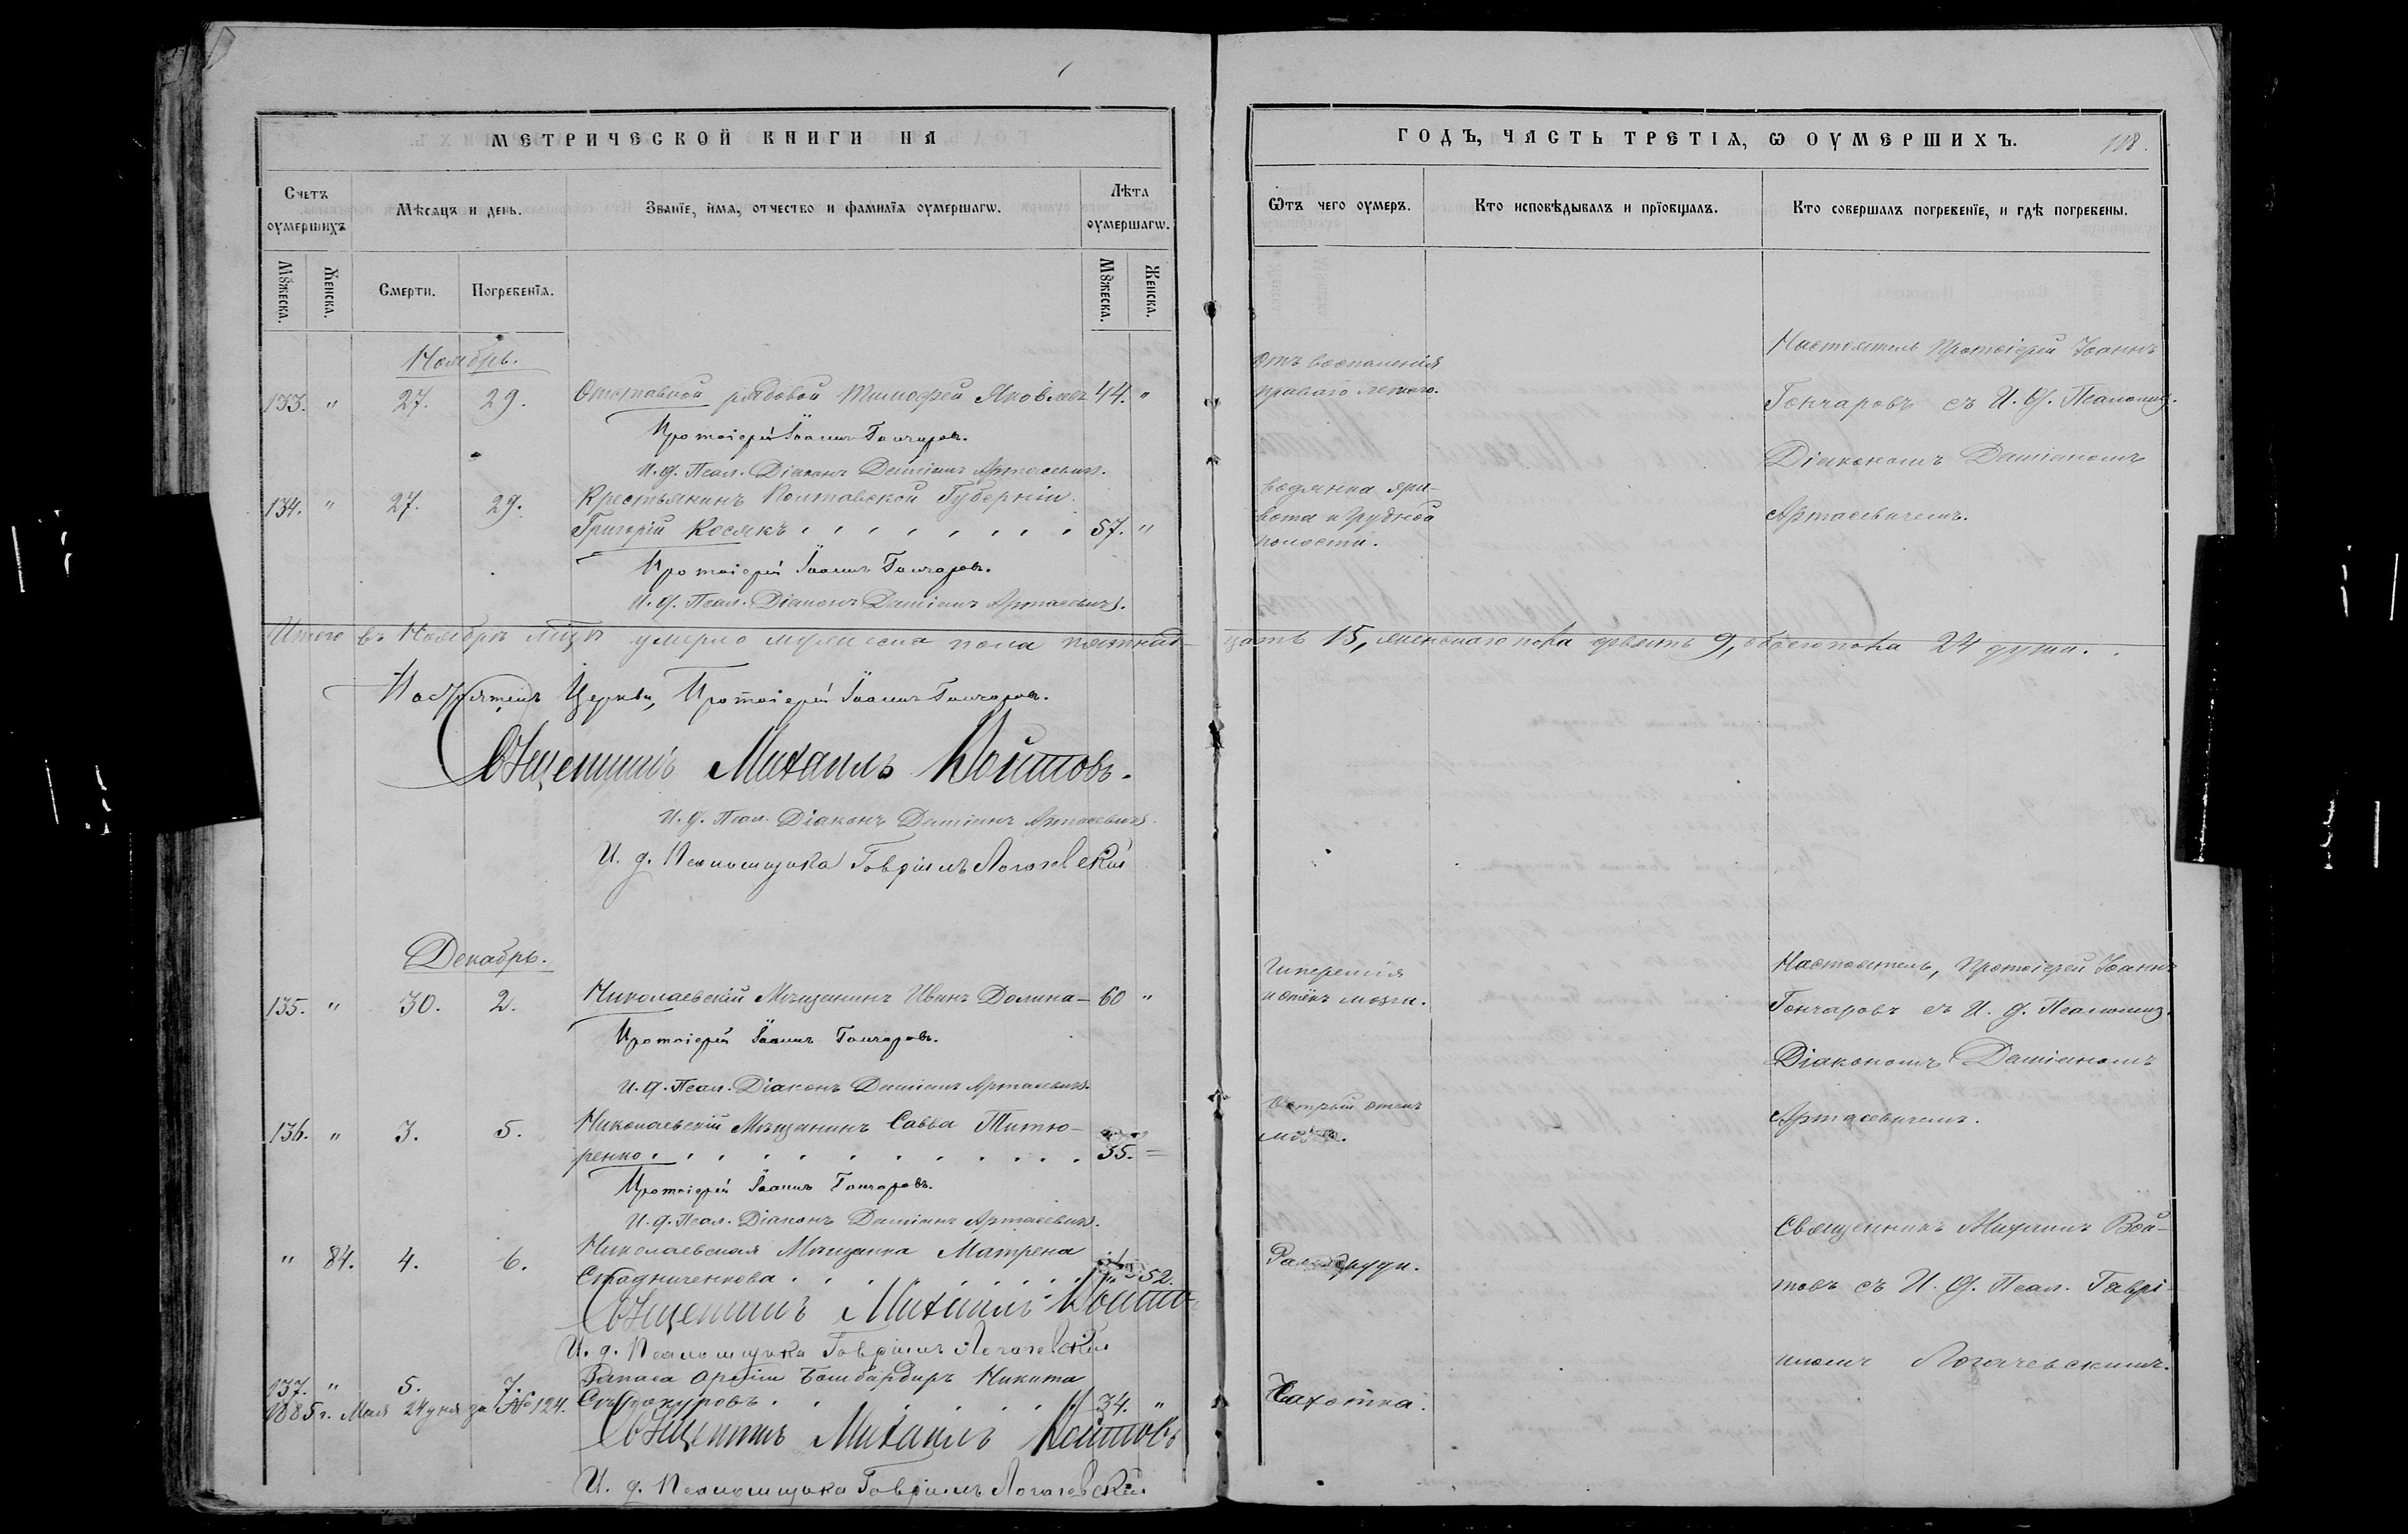 МЕТРИЧЕСКОЙ КНИГИ НА
Счетъ оумершихъ
Мѣсяцъ и день.
Званїе, имѧ, отчество и фамилїѧ оумершагѡ.
Лѣта оумершагѡ.
Мꙋжеска.
Женска.
Смерти.
Погребенїѧ.
Мꙋжеска.
Женска.
Ноябрь.
133. " 27. 29. Отставной рядовой Тимофей Яковлевъ 44. "
Протоіерей Іоаннъ Гончаровъ.
И. д. Псал. Діаконъ Даміанъ Артасевичъ.
134. " 27. 29. Крестьянинъ Полтавской Губерніи
Григорій Косякъ 57. "
Протоіерей Іоаннъ Гончаровъ.
И. д. Псал. Діаконъ Даміанъ Артасевичъ.
Итого въ Ноябрѣ м͠цѣ умерло мужеска пола пятнад-
Настоятель Церкви, Протоіерей Іоаннъ Гончаровъ.
Священникъ Михаилъ Войтовъ.
И. д. Псал. Діаконъ Даміанъ Артасевичъ.
И. д. Псаломщика Гавріилъ Логачевскій
Декабрь.
135. " 30. 2. Николаевскій Мѣщанинъ Иванъ Долина 60 "
Протоіерей Іоаннъ Гончаровъ.
И. д. Псал. Діаконъ Даміанъ Артасевичъ.
136. " 3. 5. Николаевскій Мѣщанинъ Савва Титю-
ренко 35. =
Протоіерей Іоаннъ Гончаровъ.
И. д. Псал. Діаконъ Даміанъ Артасевичъ.
" 84. 4. 6. Николаевская Мѣщанка Матрена
Стадниченкова " 52.
Священникъ Михаилъ Войтовъ
И. д. Псаломщика Гавріилъ Логачевскій
137. " 5. 7. Запаса арміи Бомбардиръ Никита
1885 г. Мая 24 дня за № 124. 34. "
Священникъ Михаилъ Войтовъ
И. д. Псаломщика Гавріилъ Логачевскій
ГОДЪ, ЧАСТЬ ТРЕТІѦ, Ѡ ОУМЕРШИХЪ.
118.
Ѿтъ чего оумеръ.
Кто исповѣдывалъ и прїобщалъ.
Кто совершалъ погребенїе, и гдѣ погребены.
Отъ воспаленія
праваго легкаго.
Настоятель Протоіерей Іоаннъ
Гончаровъ съ И. д. Псаломщ.
Діакономъ Даміаномъ
Артасевичемъ.
водянка жи-
вота и грудной
полости.
цать 15, женскаго пола девять 9, обоего пола 24 души.
Гиперемія
и отёкъ мозга.
Настоятель, Протоіерей Іоаннъ
Гончаровъ съ И. д. Псаломщ.
Діакономъ Даміаномъ
Артасевичемъ.
Острый отекъ
мозга.
Ракъ груди.
Священникъ Михаилъ Вой-
товъ съ И. д. Псал. Гаврі-
иломъ Логачевскимъ.
Чахотка.